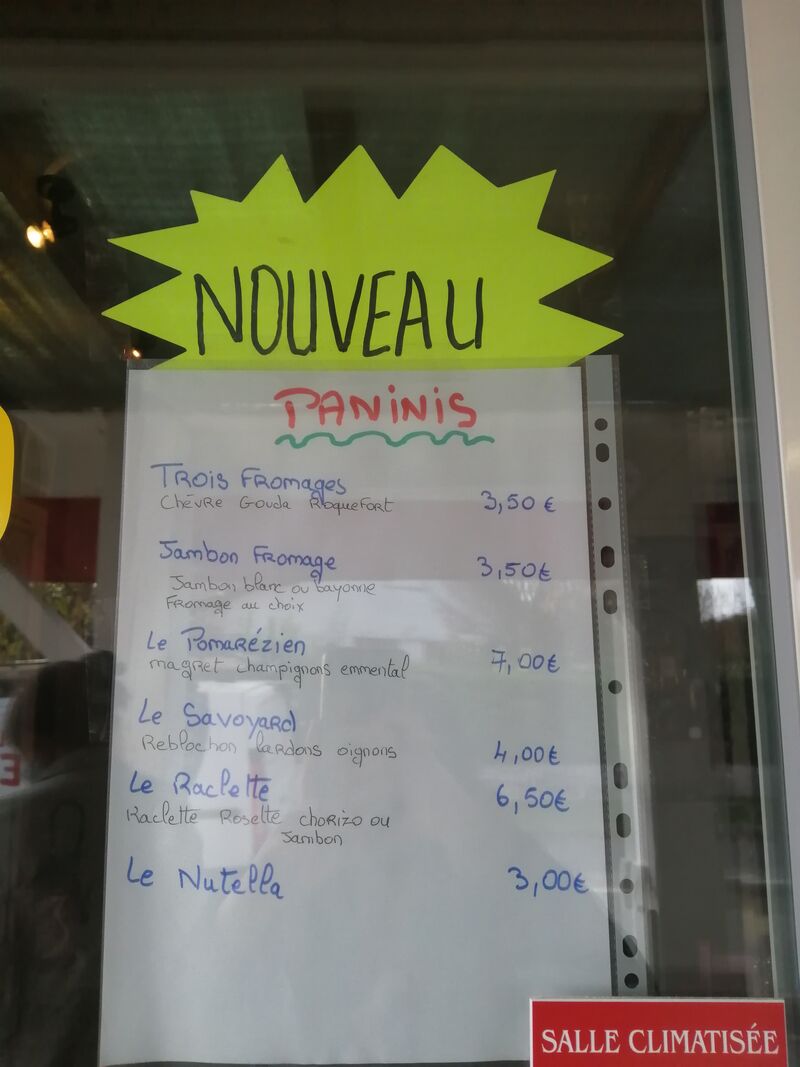 NOUVEAU
PANINIS
TROIS FROMAGES
CHÈVRE GOUDA ROQUEFORT 3,50 €
Jambon FROMAGE 3,50€
Jambon blanc ou bayonne
FROMAGE au choix
Le POMARÉZIEN 7,00€
magret champignons emmental
Le SAVOYARD
REBLOCHON LARDONS oignons 4,00€
Le Raclette 6,50€
Raclette Rosette CHORIZO OU
Jambon
Le Nutella 3,00€
SALLE CLIMATISÉE